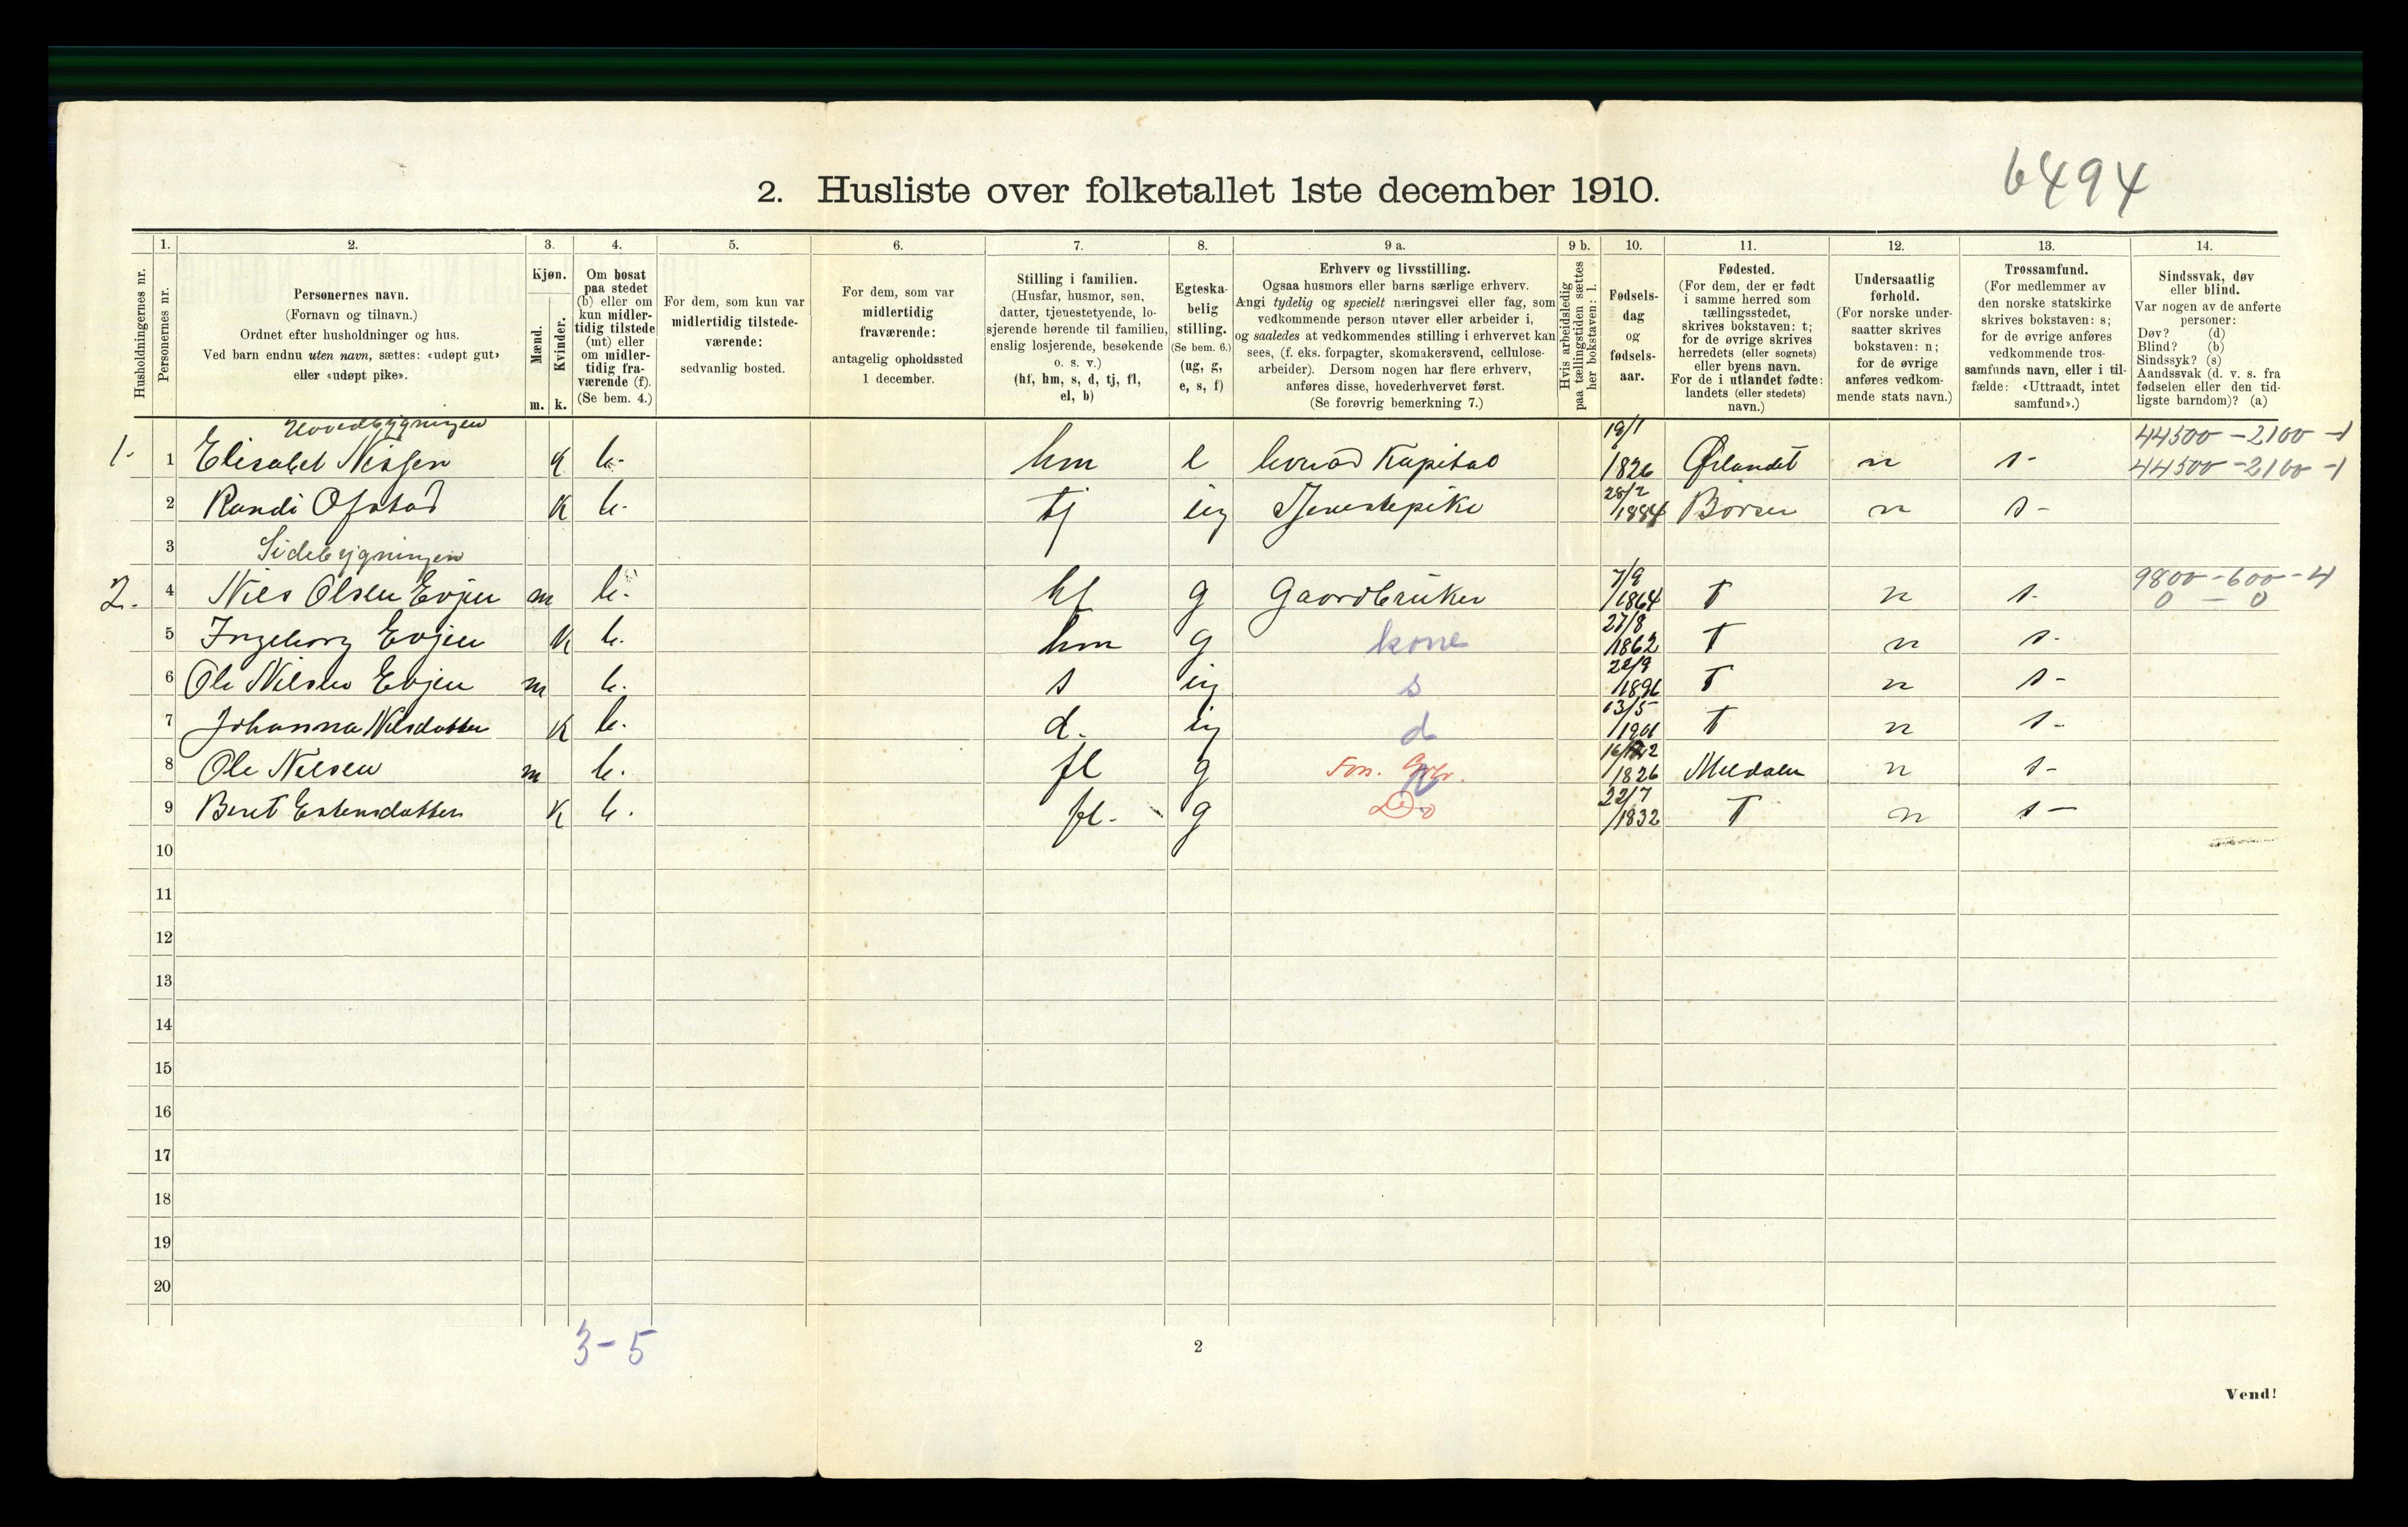 6494
2. Husliste over folketallet 1ste december 1910.
Husholdningernes nr.
1. Personernes nr.
2. Personernes navn.
(Fornavn og tilnavn.)
Ordnet efter husholdninger og hus.
Ved barn endnu uten navn, sættes: «udøpt gut»
eller «udøpt pike».
3. Kjøn.
Mænd. Kvinder.
m. k.
4. Om bosat
paa stedet
(b) eller om
kun midler-
tidig tilstede
(mt) eller
om midler-
tidig fra-
værende (f).
(Se bem. 4.)
5. For dem, som kun var
midlertidig tilstede-
værende:
sedvanlig bosted.
6. For dem, som var
midlertidig
fraværende:
antagelig opholdssted
1 december.
7. Stilling i familien.
(Husfar, husmor, søn,
datter, tjenestetyende, lo-
sjerende hørende til familien,
enslig losjerende, besøkende
o. s. v.)
(hf, hm, s, d, tj, fl,
el, b)
8. Egteska-
belig
stilling.
(Se bem. 6.)
(ug, g,
e, s, f)
9 a. Erhverv og livsstilling.
Ogsaa husmors eller barns særlige erhverv.
Angi tydelig og specielt næringsvei eller fag, som
vedkommende person utøver eller arbeider i,
og saaledes at vedkommendes stilling i erhvervet kan
sees, (f. eks. forpagter, skomakersvend, cellulose-
arbeider). Dersom nogen har flere erhverv,
anføres disse, hovederhvervet først.
(Se forøvrig bemerkning 7.)
9 b. Hvis arbeidsledig
paa tællingstiden sættes
her bokstaven: l.
10. Fødsels-
dag
og
fødsels-
aar.
11. Fødested.
(For dem, der er født
i samme herred som
tællingsstedet,
skrives bokstaven: t;
for de øvrige skrives
herredets (eller sognets)
eller byens navn.
For de i utlandet fødte:
landets (eller stedets)
navn.)
12. Undersaatlig
forhold.
(For norske under-
saatter skrives
bokstaven: n;
for de øvrige
anføres vedkom-
mende stats navn.)
13. Trossamfund.
(For medlemmer av
den norske statskirke
skrives bokstaven: s;
for de øvrige anføres
vedkommende tros-
samfunds navn, eller i til-
fælde: «Uttraadt, intet
samfund».)
14. Sindssvak, døv
eller blind.
Var nogen av de anførte
personer:
Døv? (d)
Blind? (b)
Sindssyk? (s)
Aandssvak (d. v. s. fra
fødselen eller den tid-
ligste barndom)? (a)
Hovedbygningen 19/1 44500 - 2100 - 1
1. 1 Elisabet Nissen k b. hm e levnad Kapital 1826 Ørlandet n s- 44500 - 2100 - 1
2 Randi Ofstad k b. tj ug Tjenestepike 28/2 1884 Børsen n s-
3 Sidebygningen
2. 4 Nils Olsen Evjen m b. hf g Gaardbruker 7/9 1864 T n s- 9800 - 600 - 4
0 - 0
5 Ingeborg Evjen k b. hm g kone 27/8 1862 T n s-
6 Ole Nilsen Evjen m b. s ug s 22/9 1896 T n s-
7 Johanna Nilsdatter k b. d. ug d 13/5 1901 T n s-
8 Ole Nilsen m b. fl g 1826 Meldalen n s-
9 Beret Estensdatter k b. fl. g Do 22/7 1832 T n s-
10
11
12
13
14
15
16
17
18
19
20
3-5
2
Vend!